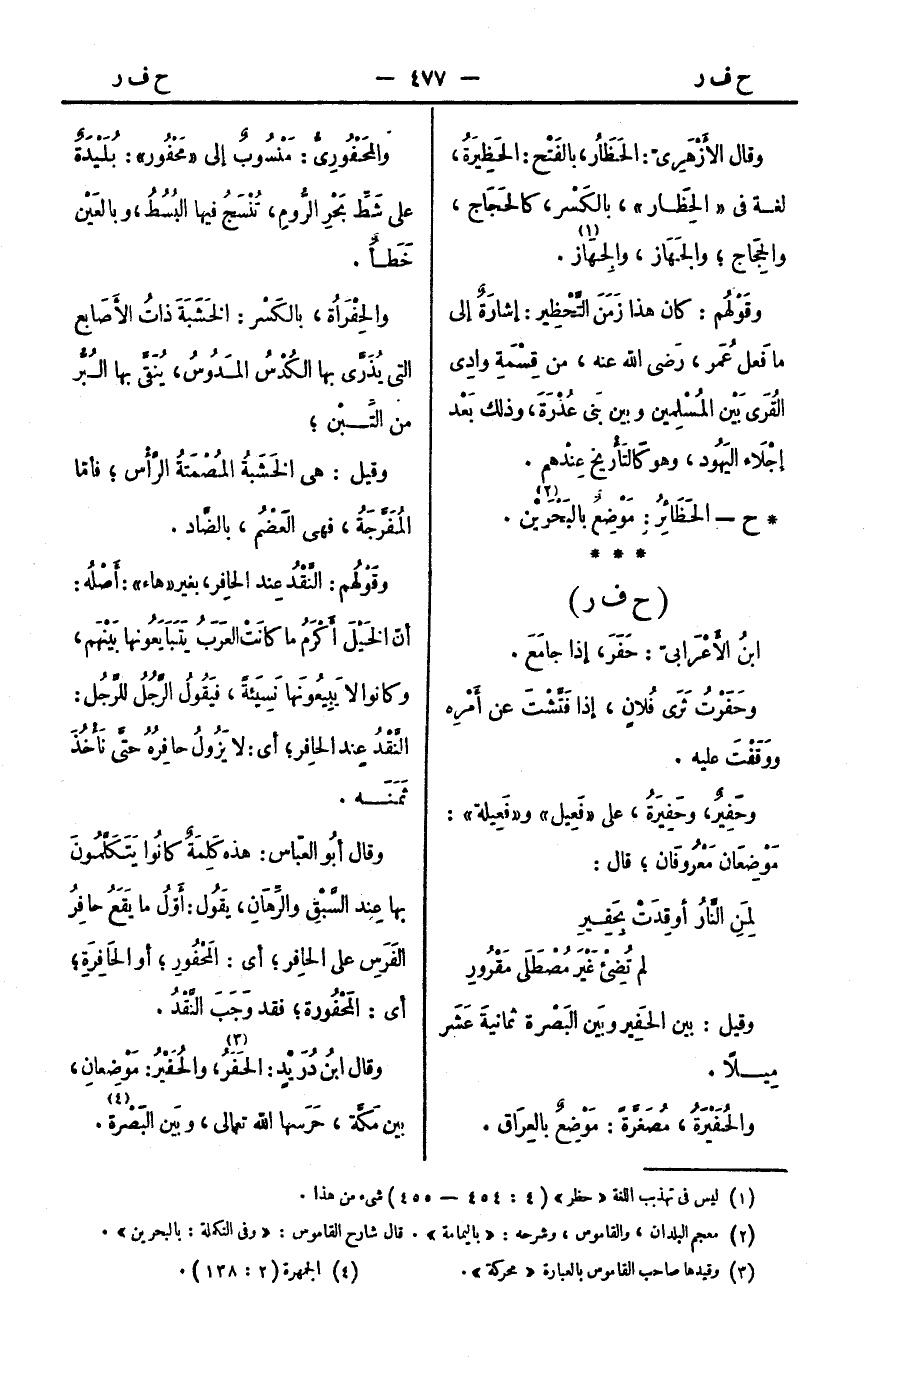 ح ف ر — ٤٧٧ — ح ف ر
وقال الأَزْهَرِىّ: الحَظَارُ، بالفَتْح: الحَظِيرَةُ،
لغـة فى « الحِظَـار» ، بالكَسْر، كالحَجَاج ،
والحِجَاج ؛ والجَهَاز ، والجِهَاز(١) .
وقَوْلُهم : كان هذا زَمَنَ التَّحْظِير : إشارَةٌ إلى
ما فَعل عُمَر ، رَضى الله عنه ، من قِسْمَةِ وادِى
القُرَى بَيْن المُسْلِمِين و بين بَنى عُذْرَةَ، وذلك بَعْد
إجْلَاء اليَهُود ، وهو كالتَأْريخ عِنْدهم .
* ح – الحَظَائِرُ : مَوْضِعٌ بالبَحْرَيْن(٢) .
* * *
(ح ف ر)
ابنُ الأَعْرَابىّ : حَفَرَ، إذا جامَعَ .
وحَفَرْتُ ثَرَى فُلانٍ ، إذا فَتَّشْتَ عن أَمْرِه
ووَقَفْتَ عليه .
وحَفِيرٌ، وحَفِيرَةُ ، على «فَعِيل» و«فَعِيلة» :
مَوْضِعَان مَعْرُوفَان ؛ قال :
لِمَنِ النَّارُ أُوقِدَتْ بِحَفِـيرِ
لم تُضِئْ غَيْرَ مُصْطَلَى مَقْرُورِ
وقيل : بين الحَفِير و بين البَصْرة ثمانيةَ عَشَر
مِيـــلًا .
والحُفَيْرَةُ ، مُصَغَّرَةً : مَوْضِعٌ بالعِرَاق .
والمَحْفُورِىُّ : مَنْسُوبٌ إلى «مَحْفُور» : بُلَيْدَةٌ
على شَطِّ بَحْرِ الرُّومِ، تُنْسَجُ فيها البُسُطُ، و بالعَيْن
خَطـأٌ .
والحِفْرَاةُ ، بالكَسْر : الخَشَبَةُ ذاتُ الأَصَابِع
التى يُذَرَّى بها الكُدْسُ المَـدُوسُ، يُنَقَّى بها الـبُرُّ
من التِّــبْن ؛
وقيل : هى الخَشَبةُ المُصْمَتةُ الرَّأْس ؛ فأمّا
المُفَرَّجَةُ ، فهى العَضْمُ ، بالضَّاد .
وقَوْلُهم : النَّقْدُ عند الحافِر، بغير «هاء» : أَصْلُه :
أنّ الخَيْلَ أَكْرَمُ ما كانَتْ العَرَبُ يَتَبايَعُونها بَيْنهم،
وكانوا لا يَبِيعُونَها نَسِيئَةً ، فيَقُولُ الرَّجُلُ للرَّجُل :
النَّقْدُ عِند الحافِر؛ أى : لا يَزُولُ حافِرُهُ حتَّى نَأْخُذَ
ثَمَنَــه .
وقال أبُو العبّاس : هذه كَلِمَةٌ كانُوا يَتَكَلَّمُونَ
بها عِند السَّبْقِ والرِّهَانِ، يَقُول : أَوّلُ ما يَقَعُ حافِرُ
الفَرَسِ على الحافِر؛ أى : المَحْفُورِ ؛ أو الحَافِرَةِ؛
أى : المَحْفُورة؛ فقد وَجَبَ النَّقْدُ .
وقال ابنُ دُرَيْدٍ : الحَفَرُ(٣)، والحُفَيْرُ : مَوْضِعانِ،
بين مَكَّة ، حَرَسها الله تعالى ، و بَين البَصْرة(٤) .
(١) ليس فى تهذيب اللغة « حظر» (٤ : ٤٥٤ — ٤٥٥) شىء من هذا .
(٢) معجم البلدان ، والقاموس ، وشرحه : « باليمامة » . قال شارح القاموس : « وفى التكملة : بالبحرين » .
(٣) وقيدها صاحب القاموس بالعبارة « محركة ». (٤) الجمهرة (٢ : ١٣٨) .